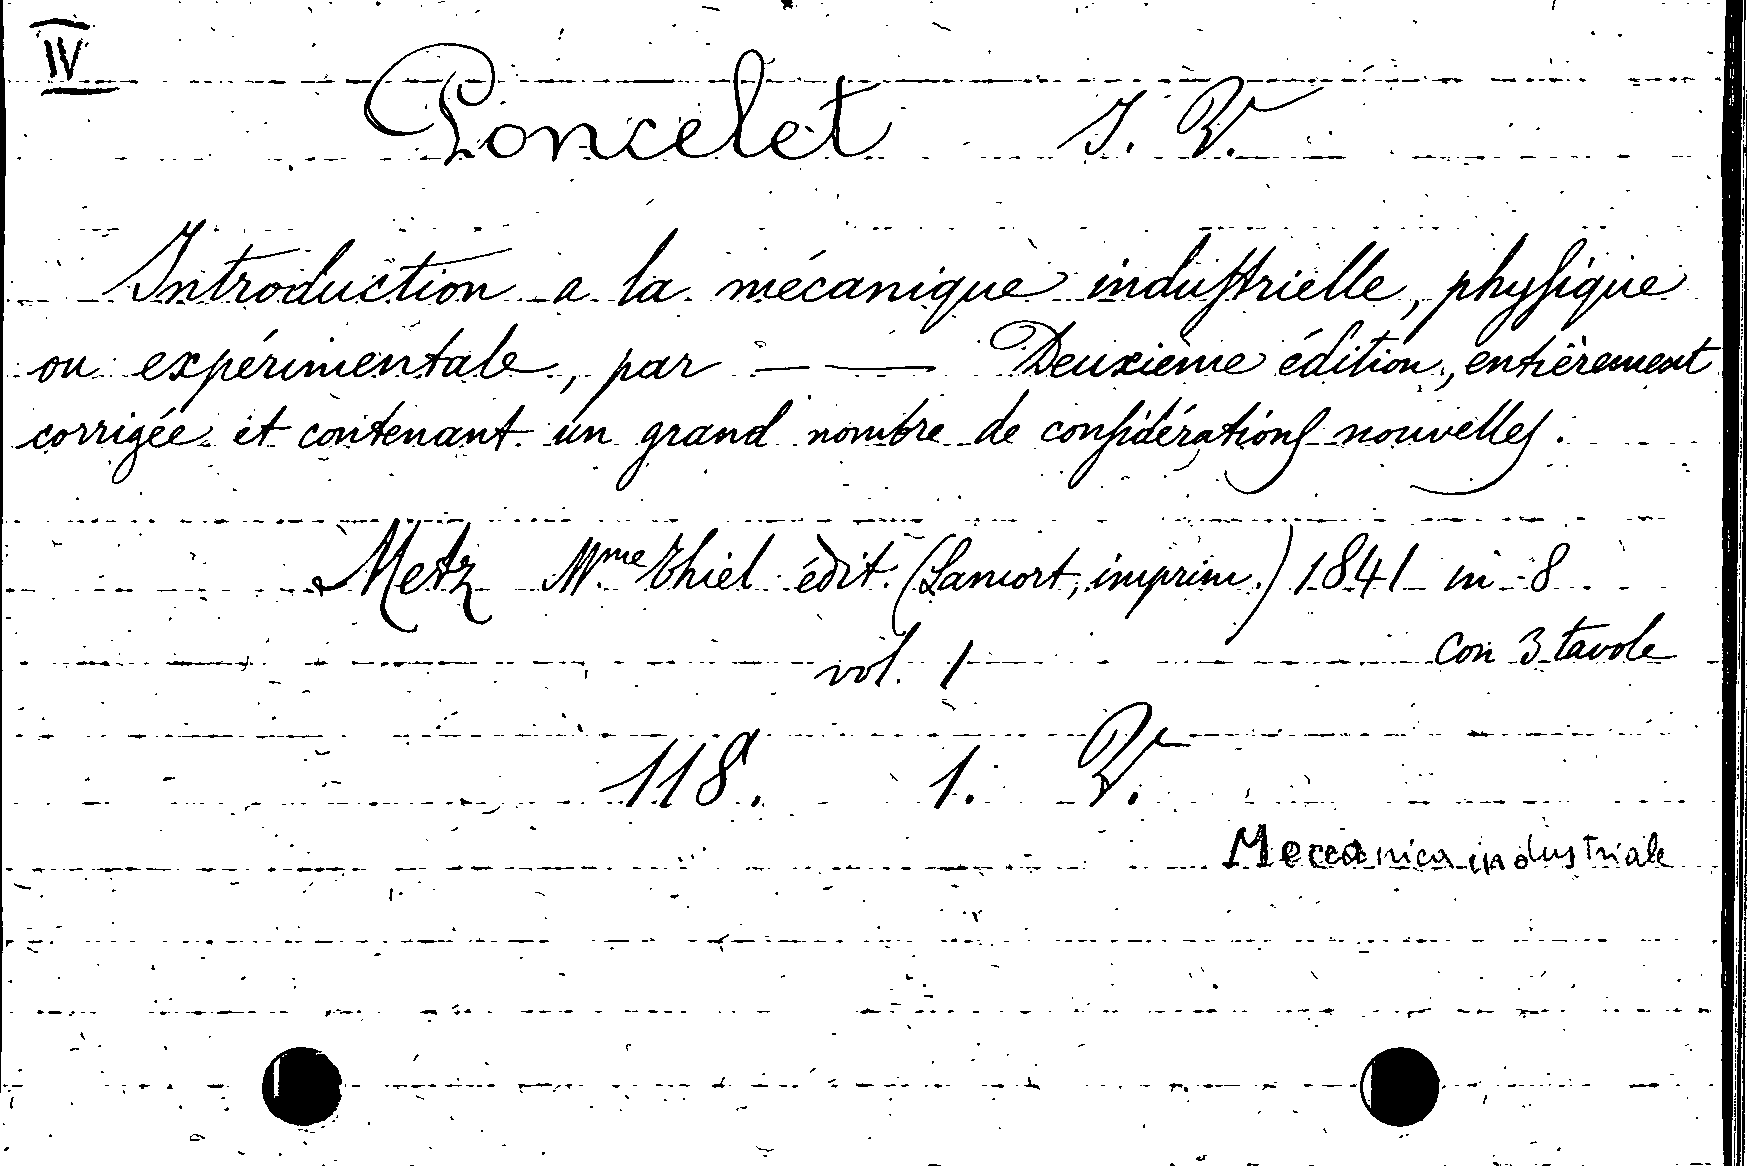 IV
Poncelet J. V.
Introduction a la mécanique industrielle, physique
ou expérimentale, par — — Deuxième édition, entièrement
corrigée et contenant un grand nombre de considérations nouvelles.
Metz Mme Thiel édit. (Lamort, imprim.) 1841 in-8
vol. 1 con 3 tavole
118. 1. V.
Meccanica industriale